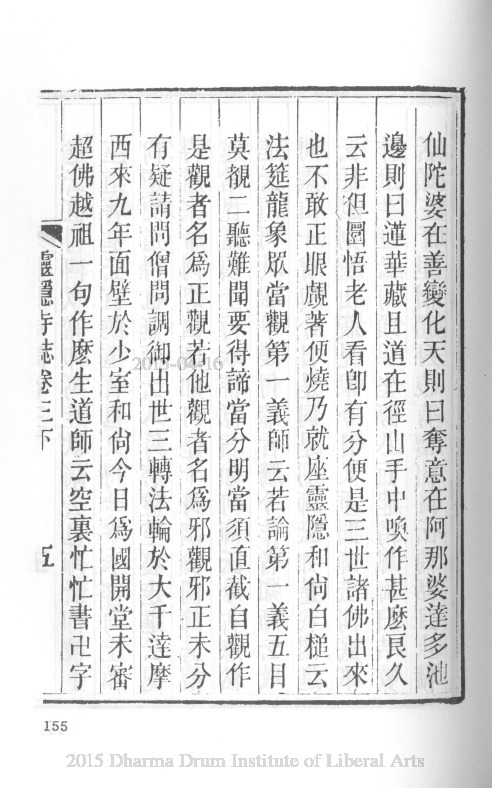 仙陀婆在善變化天則曰奪意在阿那婆達多池
邊則曰蓮華藏且道在徑山手中喚作甚麼良久
云非但圜悟老人看卽有分便是三世諸佛出來
也不敢正眼覷著便燒乃就座靈隱和尙白槌云
法筵龍象眾當觀第一義師云若論第一義五目
莫覩二聽難聞要得諦當分明當須直截自觀作
是觀者名爲正觀若他觀者名爲邪觀邪正未分
有疑請問僧問調御出世三轉法輪於大千達摩
西來九年面壁於少室和尙今日爲國開堂未審
超佛越祖一句作麼生道師云空裏忙忙書卍字
靈隱寺誌卷三下
五
155
2015 Dharma Drum Institute of Liberal Arts